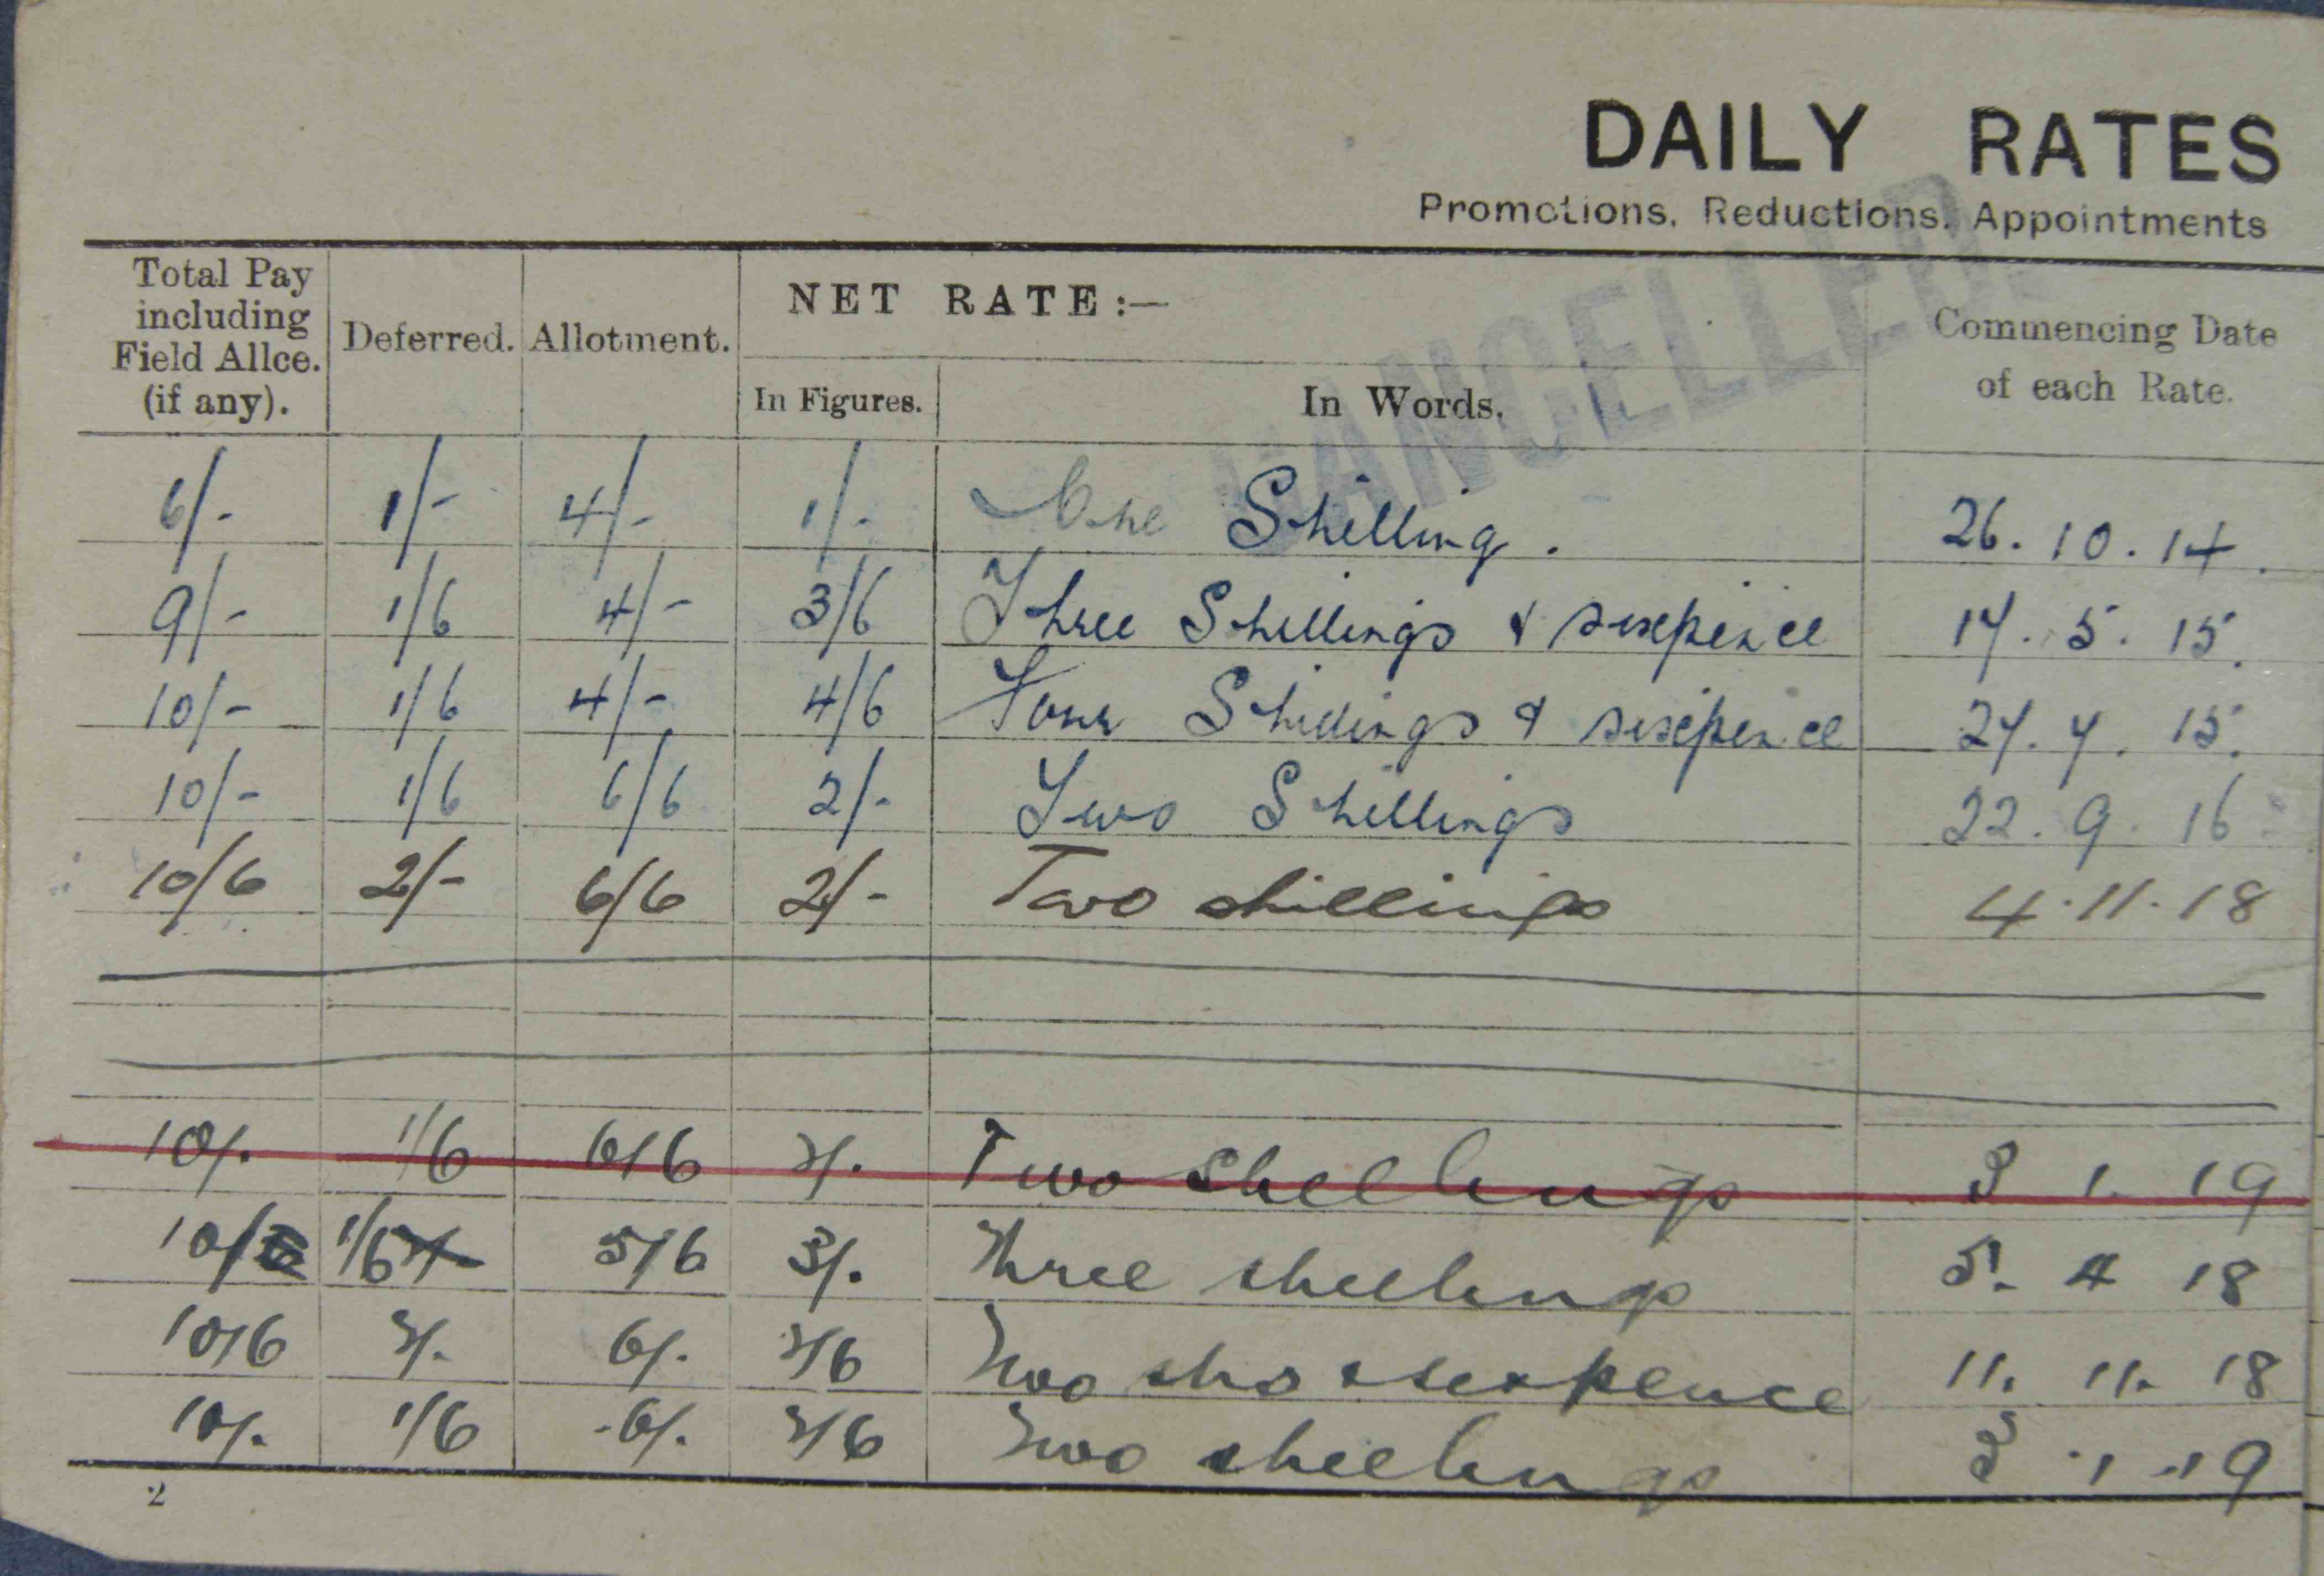 DAILY RATES
Promotions, Reductions, Appointments
CANCELLED.
Total Pay including Field Allce. (if any). Deferred. Allotment. NET RATE:— In Figures. In Words. Commencing Date of each Rate.
6/- 1/- 4/- 1/- One Shilling. 26.10.14.
9/- 1/6 4/- 3/6 Three Shillings & sixpence 17.5.15.
10/- 1/6 4/- 4/6 Four Shillings & sixpence 27.7.15.
10/- 1/6 6/6 2/- Two Shillings 22.9.16
10/6 2/- 6/6 2/- Two shillings 4.11.18
10/. 1/6 6/6 2/. Two Shillings 3 1. 19
10/ 1/6 5/6 3/. Three shillings 5. 4 18
10/6 2/. 6/. 2/6 Two shs & sixpence 11. 11. 18
10/. 1/6 6/. 2/6 Two shillings 3 .1 .19
2